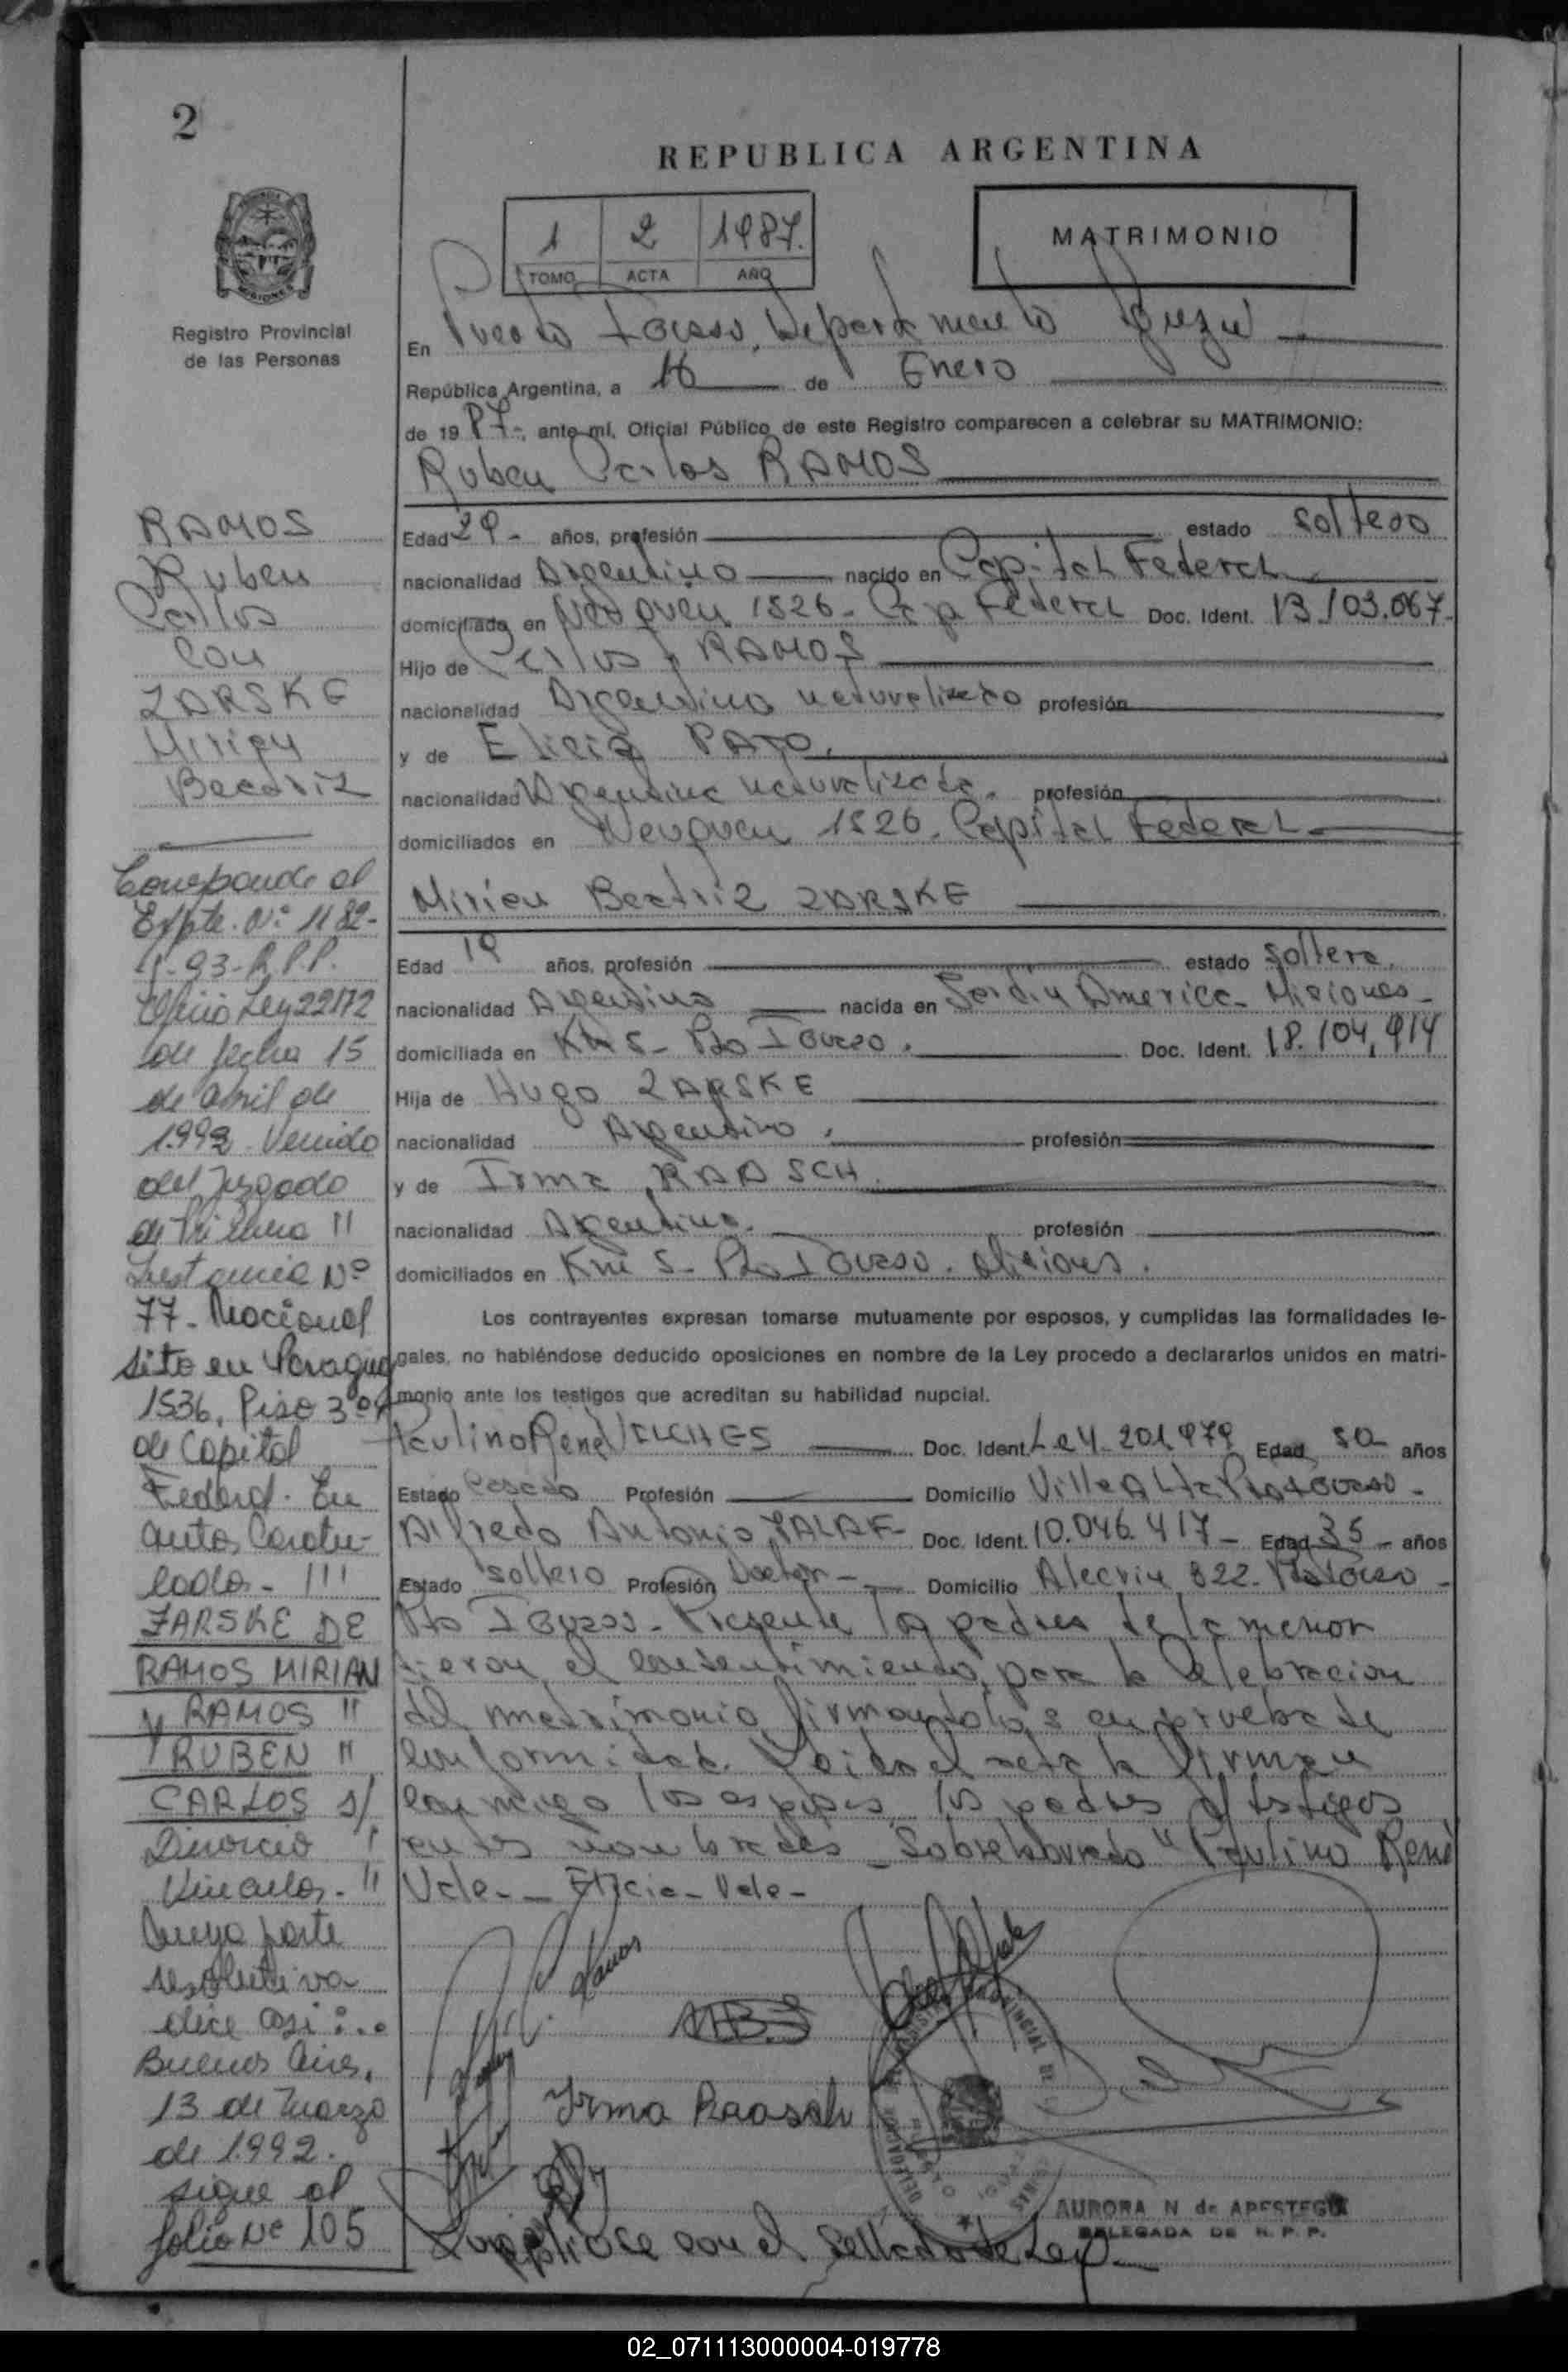 2
REPUBLICA ARGENTINA
1 2 1987.
TOMO ACTA AÑO
MATRIMONIO
MISIONES
Registro Provincial
de las Personas
En Puerto Iguazú, Departamento Iguazú
República Argentina, a 16 de Enero
de 1987-, ante mí, Oficial Público de este Registro comparecen a celebrar su MATRIMONIO:
Ruben Carlos RAMOS
Edad 29- años, profesión estado soltero
nacionalidad Argentino nacido en Capital Federal
domiciliado en Neuquen 1526- Cap Federal Doc. Ident. 13.103.067-
Hijo de Carlos RAMOS
nacionalidad Argentino naturalizado profesión
y de Elicia PATO.
nacionalidad Argentina naturalizada. profesión
domiciliados en Neuquen 1526. Capital Federal-
Mirian Beatriz ZARSKE
Edad 19 años, profesión estado soltera.
nacionalidad Argentina nacida en Jardin America- Misiones-
domiciliada en Km 5- Pto Iguazu. Doc. Ident. 18.104.914
Hija de Hugo ZARSKE
nacionalidad Argentino. profesión
y de Irma RAASCH.
nacionalidad Argentina. profesión
domiciliados en Km 5- Pto Iguazu. Misiones.
Los contrayentes expresan tomarse mutuamente por esposos, y cumplidas las formalidades le-
gales, no habiéndose deducido oposiciones en nombre de la Ley procedo a declararlos unidos en matri-
monio ante los testigos que acreditan su habilidad nupcial.
Paulino René VILCHES Doc. Ident. 201.979 Edad 50 años
Estado Casado Profesión Domicilio Villa Alta Pto Iguazu-
Alfredo Antonio Doc. Ident. 10.046.417- Edad 35- años
Estado soltero Profesión Doctor- Domicilio Alecrin 822- Pto Iguazu-
Pto Iguazu- Presente los padres de la menor
dieron el consentimiento para la celebracion
del matrimonio firmando en prueba de
conformidad. Leida el acta la firman
conmigo los esposos, los padres y testigos
antes nombrados- Sobreborrado "Paulino René
Vale-- Elicia- Vale-
Ramos
M.B.Z
Irma Raasch
AURORA N de APESTEGUI
DELEGADA DE R. P. P.
con el Sellado de Ley-
RAMOS
Ruben
Carlos
Con
ZARSKE
Mirian
Beatriz
Corresponde al
Expte. Nº 1182-
93-R.P.P.
Oficio Ley 22172
de fecha 15
de abril de
1.993 Venido
del Juzgado
de Primera "
Instancia Nº
77- Nacional
sito en Paraguay
1536, Piso 3º
de Capital
Federal. En
autos Caratu-
lados- "'
ZARSKE DE
RAMOS MIRIAN
y RAMOS "
RUBEN "
CARLOS s/
Divorcio "
Vincular- "
Cuya parte
resolutiva
dice asi:..
Buenos Aires,
13 de Marzo
de 1.992.
sigue al
folio Nº 105
02_071113000004-019778